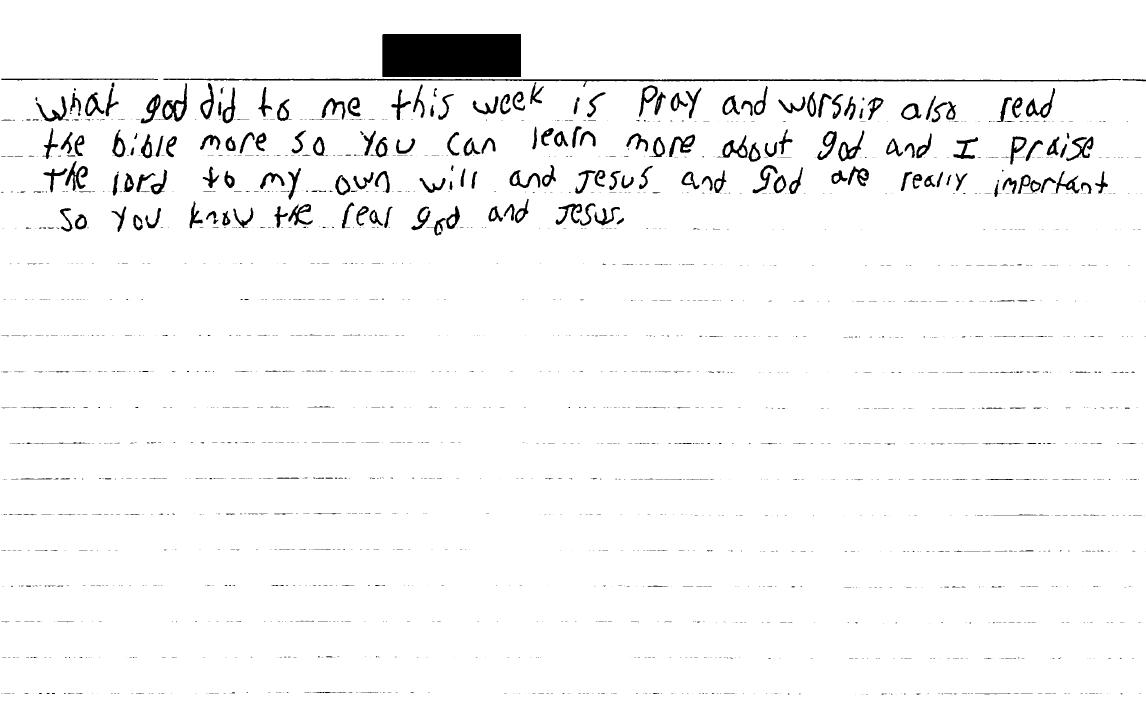 What god did to me this week is Pray and worship also read
the bible more so you can learn more about god and I praise
the lord to my own will and Jesus and God are really important
so you know the real god and Jesus.